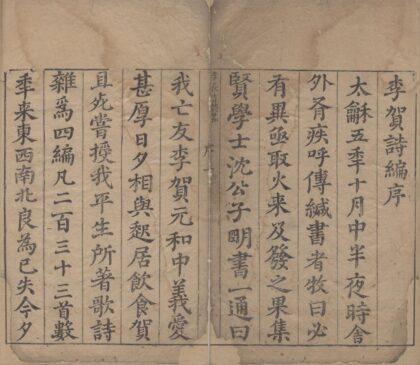 李賀詩編序
太龢五秊十月中半夜時舍
外有疾呼傳緘書者牧曰必
有異亟取火来及發之果集
賢學士沈公子明書一通曰
序
我亡友李賀元和中義愛
甚厚日夕相與起居飲食賀
且死嘗授我平生所著歌詩
雜爲四編凡二百三十三首數
秊来東西南北良為已失今夕